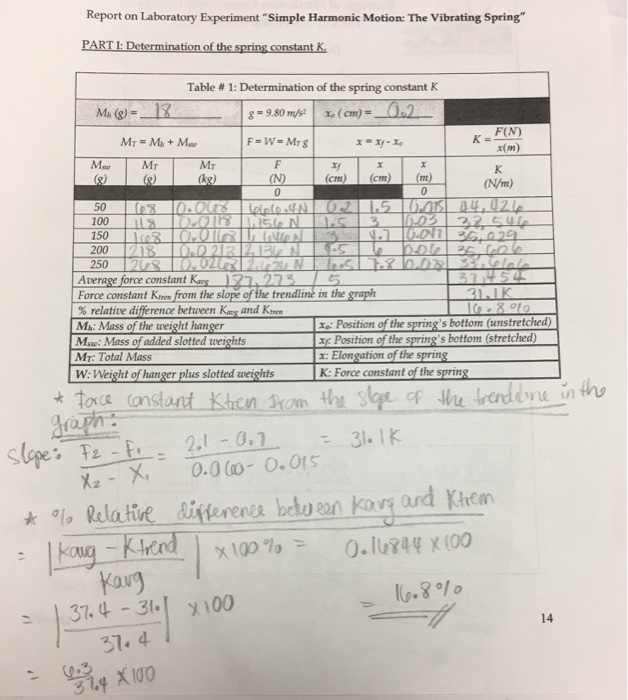 Report on Laboratory Experiment "Simple Harmonic Motion: The Vibrating Spring"
PART I: Determination of the spring constant K.
Table # 1: Determination of the spring constant K
Mh (g) = 18 g = 9.80 m/s² xo (cm) = 0.2
MT = Mh + Msw F = W = MT g x = xf - xo K = F(N) / x(m)
Msw (g) MT (g) MT (kg) F (N) xf (cm) x (cm) x (m) K (N/m)
0 0
50 68 0.068 N 0.2 1.5 0.015 44,426
100 118 0.0118 1.156 N 1.5 3 0.03
150 168 4.7
200 218 6
250 268 7.8
Average force constant Kavg 187,273 / 5 37,454
Force constant Ktren from the slope of the trendline in the graph 31.1K
% relative difference between Kavg and Ktren 16.8%
Mh: Mass of the weight hanger xo: Position of the spring's bottom (unstretched)
Msw: Mass of added slotted weights xf: Position of the spring's bottom (stretched)
MT: Total Mass x: Elongation of the spring
W: Weight of hanger plus slotted weights K: Force constant of the spring
* Force constant Ktren from the slope of the trenddine in the
graph:
Slope: F2 - F1 / X2 - X1 = 2.1 - 0.7 / 0.060 - 0.015 = 31.1K
* % Relative difference between Kavg and Ktrem
= | Kavg - Ktrend / Kavg | x 100% = 0.16844 x 100
= | 37.4 - 31.1 / 37.4 | x 100 = 16.8%
14
= 6.3 / 37.4 x 100